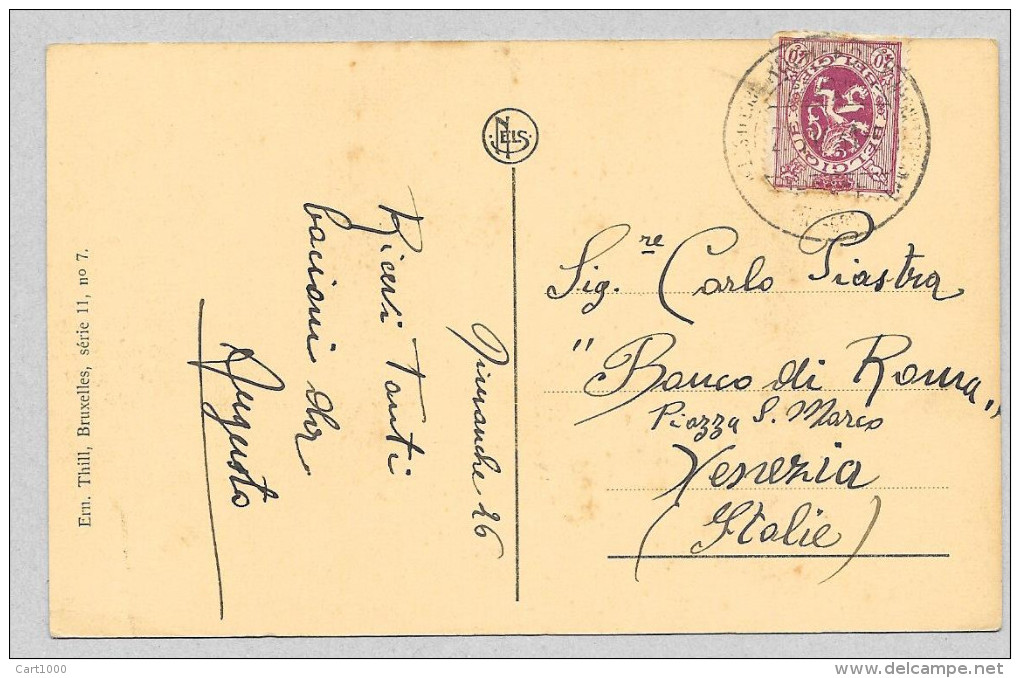 Ern. Thill, Bruxelles, série 11, nº 7.
NELS
Dimanche 26
Ricevi Tanti
bacioni dal
Augusto
40 40
BELGIQUE
BELGIE
Sig.re Carlo Piastra
"Banco di Roma"
Piazza S. Marco
Venezia
(Italie)
Cart1000
delcampe.net